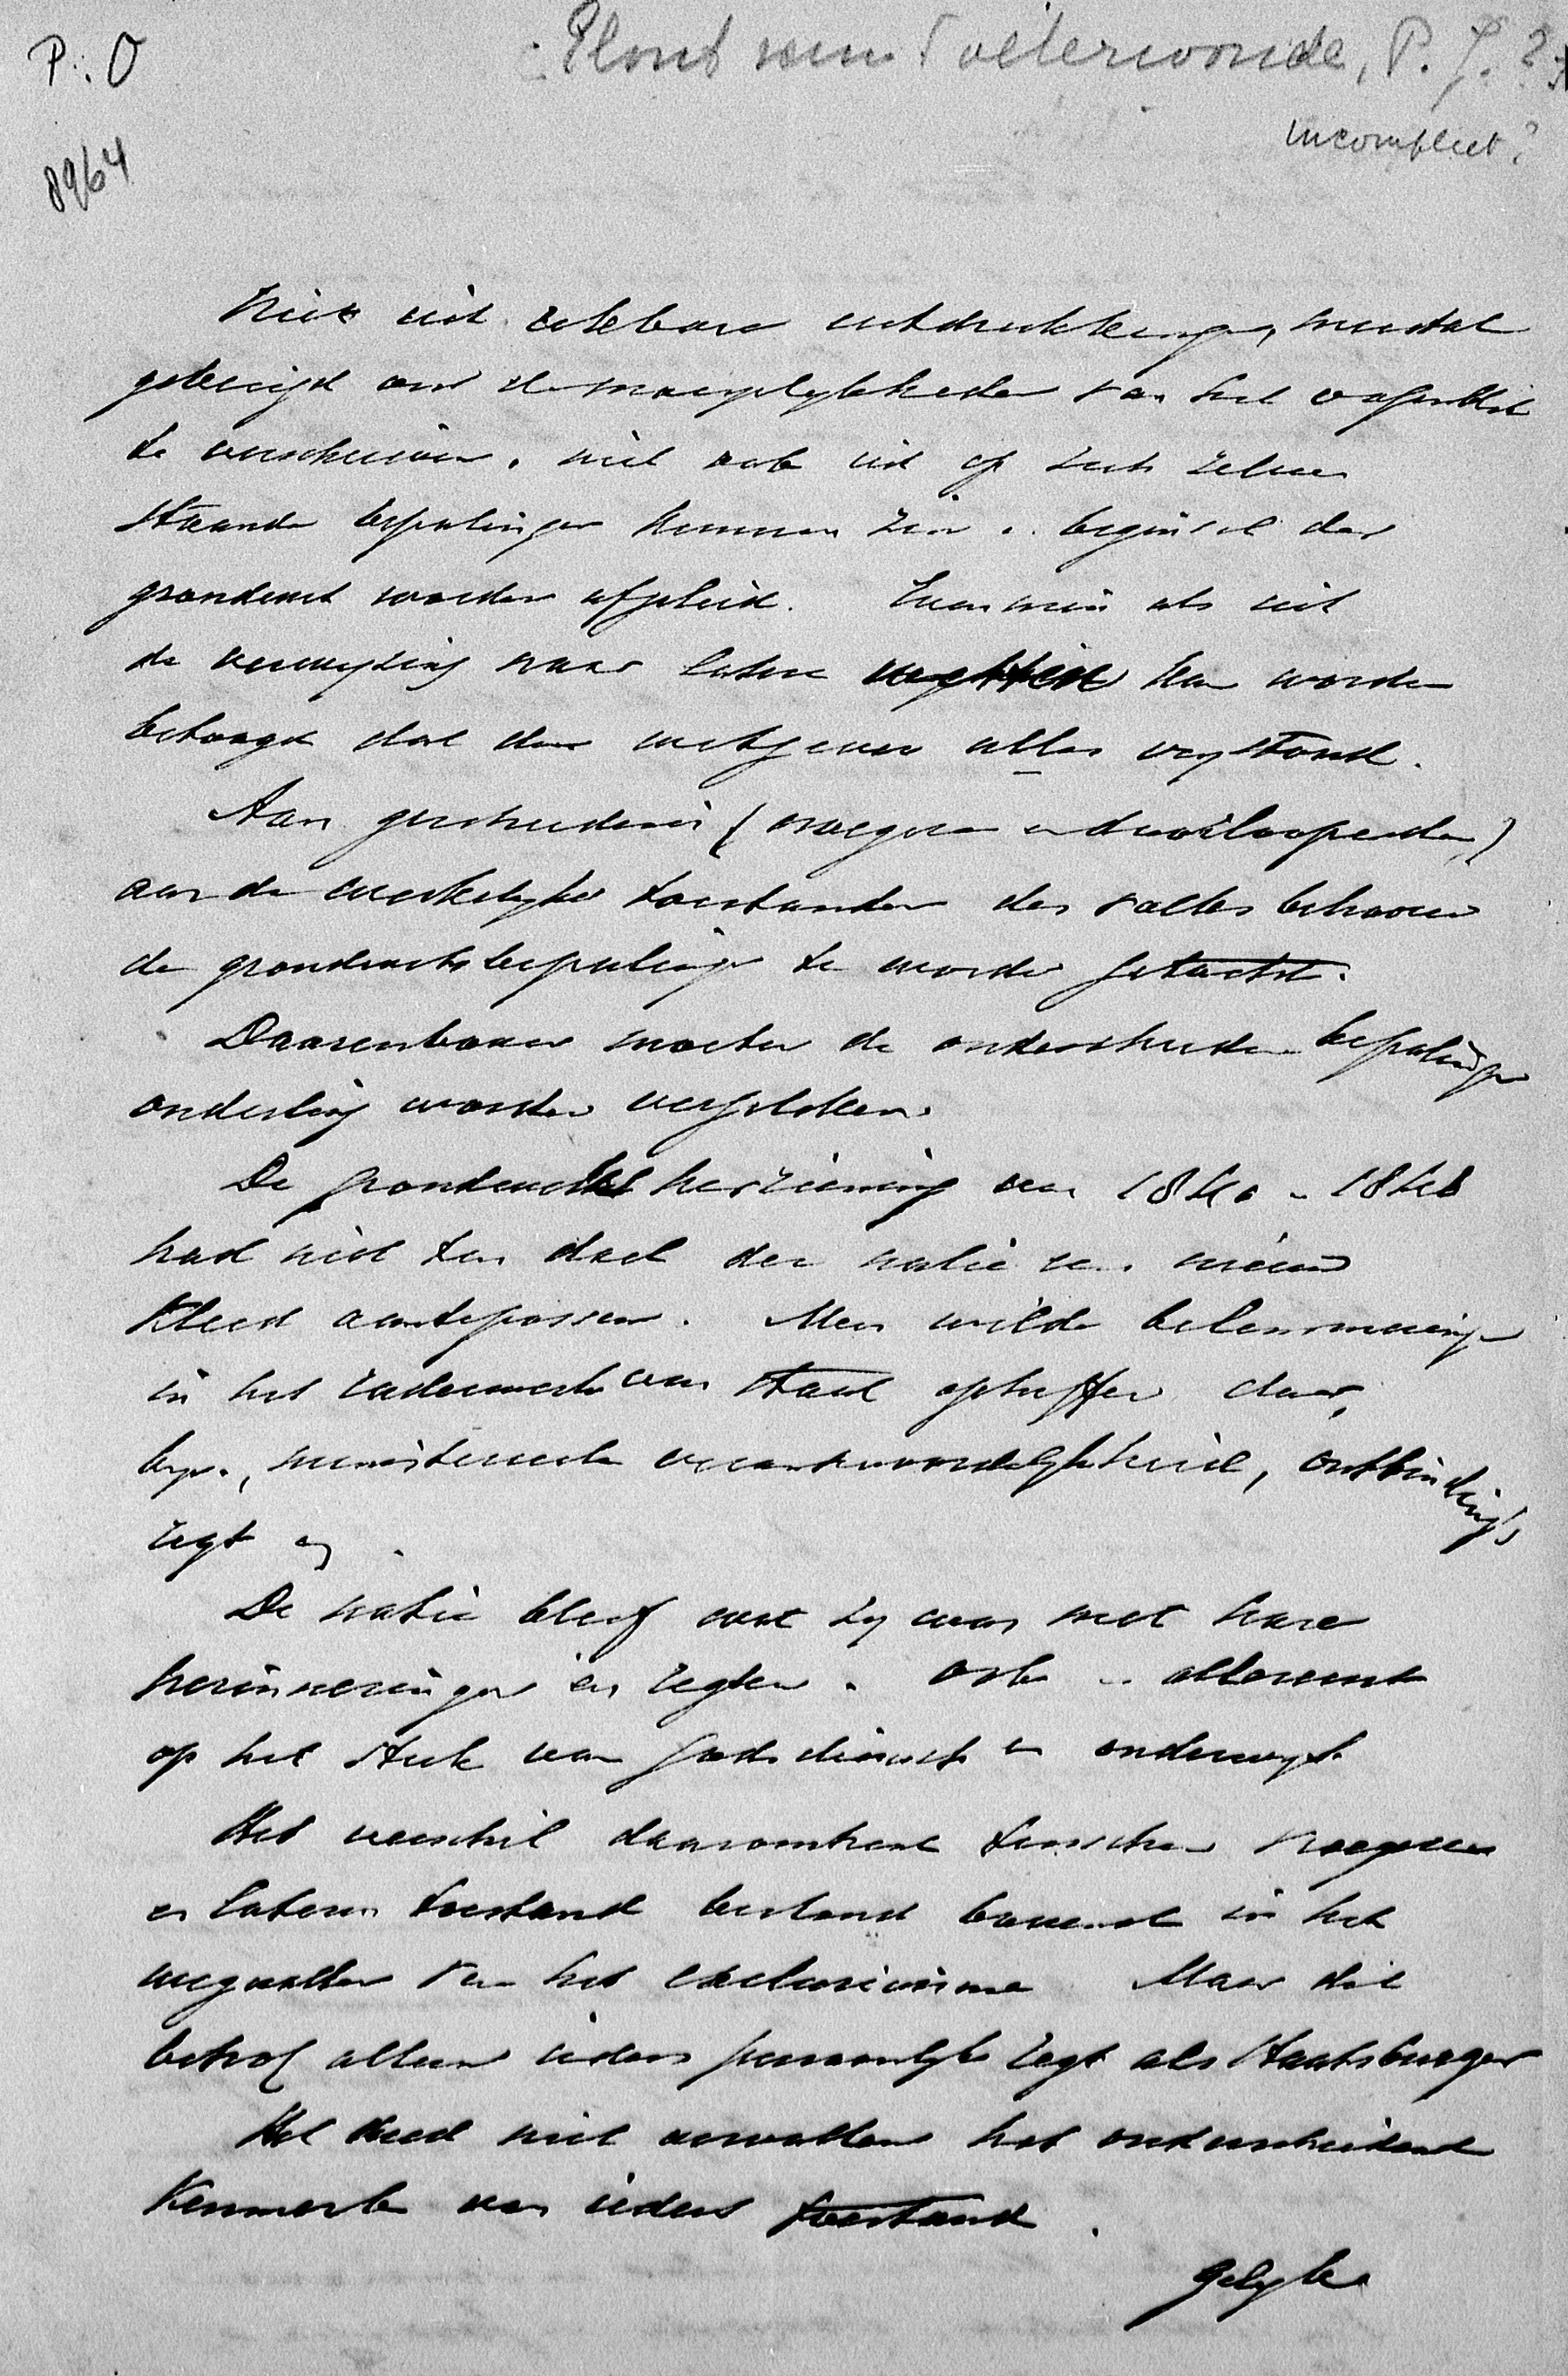 P.: O
Plout van Soeterwoude, P. J. ?
incompleet?
8964
Niet uit rekbare uitdrukkingen, meestal
gebezigd om de moeyelykheden van het oogenblik
te verschuiven, niet ook uit op zich zelven
staande bepalingen kunnen zin en beginsel der
grondwet worden afgeleid. Evenmin als uit
de verwyzing naar latere wetten kan worden
betoogd dat den wetgever alles vrystond.
Aan geschiedenis (vroegere en doorloopende)
aan de werkelyke toestanden des volks behooren
de grondwetsbepalingen te worden getoetst.
Daarenboven moeten de onderscheidene bepalingen
onderling worden vergeleken.
De grondwets herziening van 1840 en 1848
had niet ten doel der natie een nieuw
kleed aantepassen. Men wilde belemmeringen
in het raderwerk van staat opheffen door,
byv., ministerieele verantwoordelykheid, ontbindings
regt
De natie bleef wat zy was met hare
herinneringen en regten. Ook en allereerst
op het stuk van godsdienst en onderwys
Het verschil daaromtrent tusschen vroegeren
en lateren toestand bestond in het
wegvallen van het exclusivisme Maar dit
betrof alleen ieders persoonlyk regt als Staatsburger
Het deed niet wegvallen het onderscheidend
Kenmerk van ieders toestand.
Gelyke